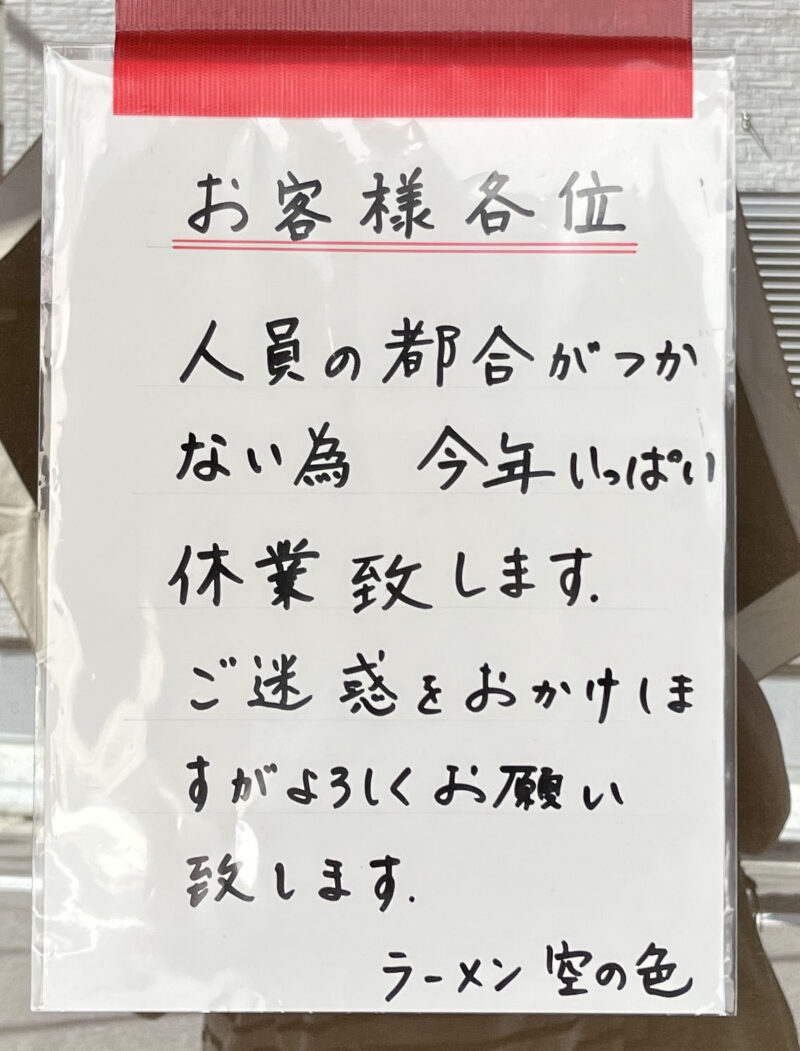 お客様各位
人員の都合がつか
ない為 今年いっぱい
休業致します.
ご迷惑をおかけしま
すがよろしくお願い
致します.
ラーメン 空の色